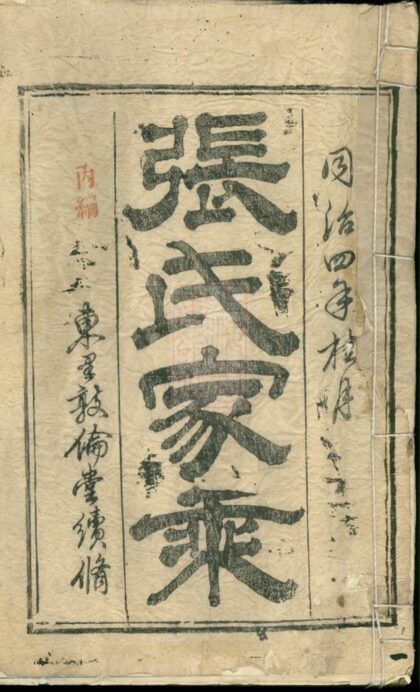 同治四年桂月
張氏家乘
東里敦倫堂續脩
内編